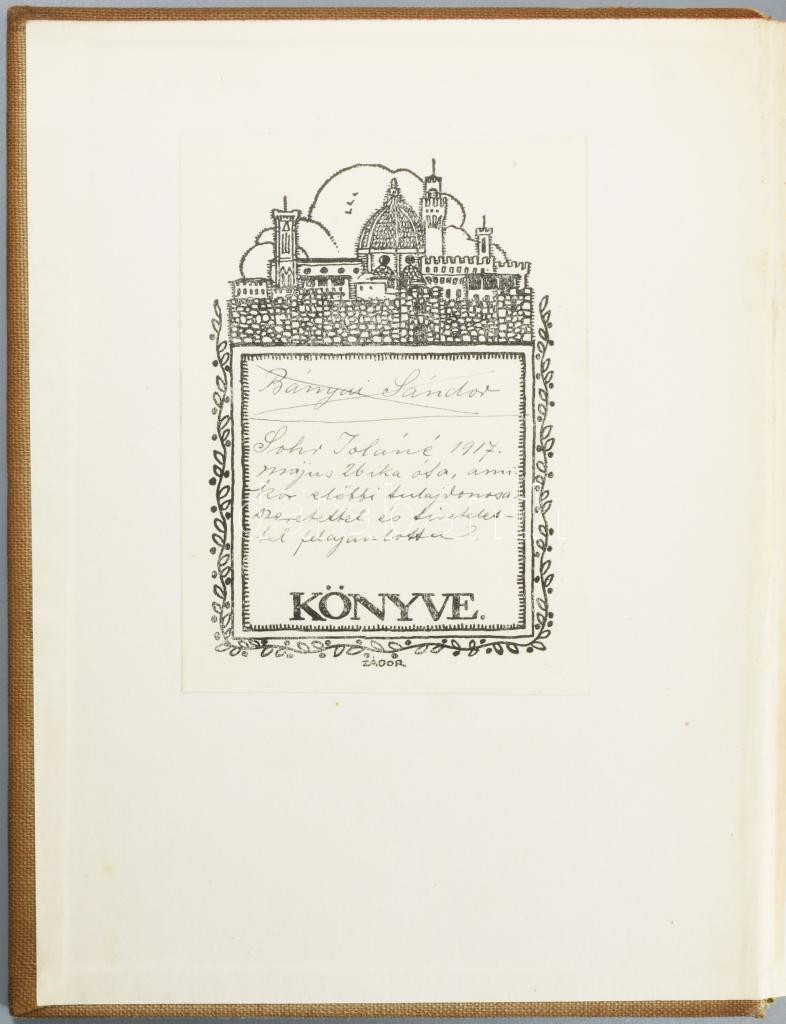 Bányai Sándor
Sohr Jolánė 1917.
május 26ika óta, ami-
kor előbbi tulajdonosa
szeretettel és tisztelet-
tel felajánlotta
KÖNYVE.
ZÁDOR
darabanth